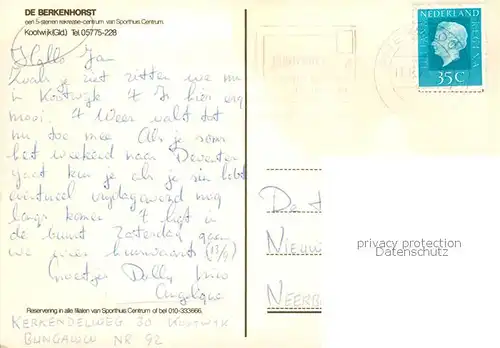 DE BERKENHORST
een 5-sterren rekreatie-centrum van Sporthuis Centrum.
Kootwijk(Gld.) Tel. 05775-228
Hallo Jan
Zoals je ziet zitten we nu
in Kootwijk 't Is hier erg
mooi. 't Weer valt tot
nu toe mee. Als je soms
het weekend naar Deventer
gaat kun je als je zin hebt
eventueel vrijdagavond nog
langs komen 't ligt in
de buurt Zaterdag gaan
we weer huiswaarts (13/9)
Groetjes Dolly Nico
Angelique
Reservering in alle filialen van Sporthuis Centrum of bel 010-333666.
KERKENDELWEG 30 KOOTWYK
BUNGALOW NR 92
NEDERLAND
35C
De
NIEUW
NEERB
privacy protection
Datenschutz